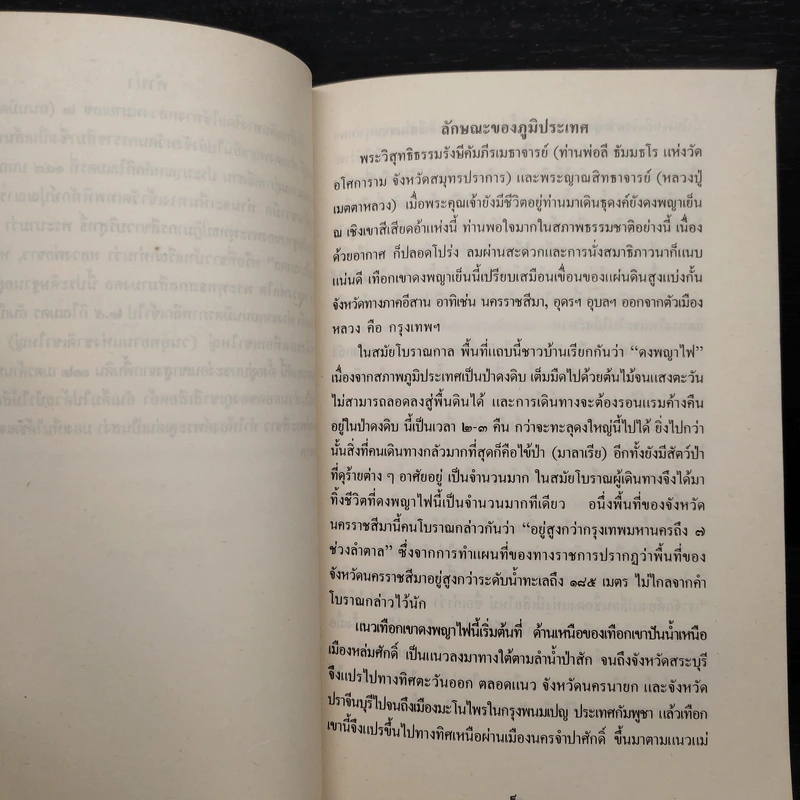 ลักษณะของภูมิประเทศ
พระวิสุทธิธรรมรังษีคัมภีรเมธาจารย์ (ท่านพ่อลี ธัมมธโร แห่งวัด
อโศการาม จังหวัดสมุทรปราการ) และพระญาณสิทธาจารย์ (หลวงปู่
เมตตาหลวง) เมื่อพระคุณเจ้ายังมีชีวิตอยู่ท่านมาเดินธุดงค์ยังดงพญาเย็น
ณ เชิงเขาสีเสียดอ้าแห่งนี้ ท่านพอใจมากในสภาพธรรมชาติอย่างนี้ เนื่อง
ด้วยอากาศ ก็ปลอดโปร่ง ลมผ่านสะดวกและการนั่งสมาธิภาวนาก็แนบ
แน่นดี เทือกเขาดงพญาเย็นนี้เปรียบเสมือนเขื่อนของแผ่นดินสูงแบ่งกั้น
จังหวัดทางภาคอีสาน อาทิเช่น นครราชสีมา, อุดรฯ อุบลฯ ออกจากตัวเมือง
หลวง คือ กรุงเทพฯ
ในสมัยโบราณกาล พื้นที่แถบนี้ชาวบ้านเรียกกันว่า “ดงพญาไฟ”
เนื่องจากสภาพภูมิประเทศเป็นป่าดงดิบ เต็มมืดไปด้วยต้นไม้จนแสงตะวัน
ไม่สามารถลอดลงสู่พื้นดินได้ และการเดินทางจะต้องรอนแรมค้างคืน
อยู่ในป่าดงดิบ นี้เป็นเวลา ๒-๓ คืน กว่าจะทะลุดงใหญ่นี้ไปได้ ยิ่งไปกว่า
นั้นสิ่งที่คนเดินทางกลัวมากที่สุดก็คือไข้ป่า (มาลาเรีย) อีกทั้งยังมีสัตว์ป่า
ที่ดุร้ายต่าง ๆ อาศัยอยู่ เป็นจำนวนมาก ในสมัยโบราณผู้เดินทางจึงได้มา
ทิ้งชีวิตที่ดงพญาไฟนี้เป็นจำนวนมากทีเดียว อนึ่งพื้นที่ของจังหวัด
นครราชสีมานี้คนโบราณกล่าวกันว่า “อยู่สูงกว่ากรุงเทพมหานครถึง ๗
ช่วงลำตาล” ซึ่งจากการทำแผนที่ของทางราชการปรากฏว่าพื้นที่ของ
จังหวัดนครราชสีมาอยู่สูงกว่าระดับน้ำทะเลถึง ๑๘๕ เมตร ไม่ไกลจากคำ
โบราณกล่าวไว้นัก
แนวเทือกเขาดงพญาไฟนี้เริ่มต้นที่ ด้านเหนือของเทือกเขาปันน้ำเหนือ
เมืองหล่มศักดิ์ เป็นแนวลงมาทางใต้ตามลำน้ำป่าสัก จนถึงจังหวัดสระบุรี
จึงแปรไปทางทิศตะวันออก ตลอดแนว จังหวัดนครนายก และจังหวัด
ปราจีนบุรีไปจนถึงเมืองมะโนไพรในกรุงพนมเปญ ประเทศกัมพูชา แล้วเทือก
เขานี้จึงแปรขึ้นไปทางทิศเหนือผ่านเมืองนครจำปาศักดิ์ ขึ้นมาตามแนวแม่